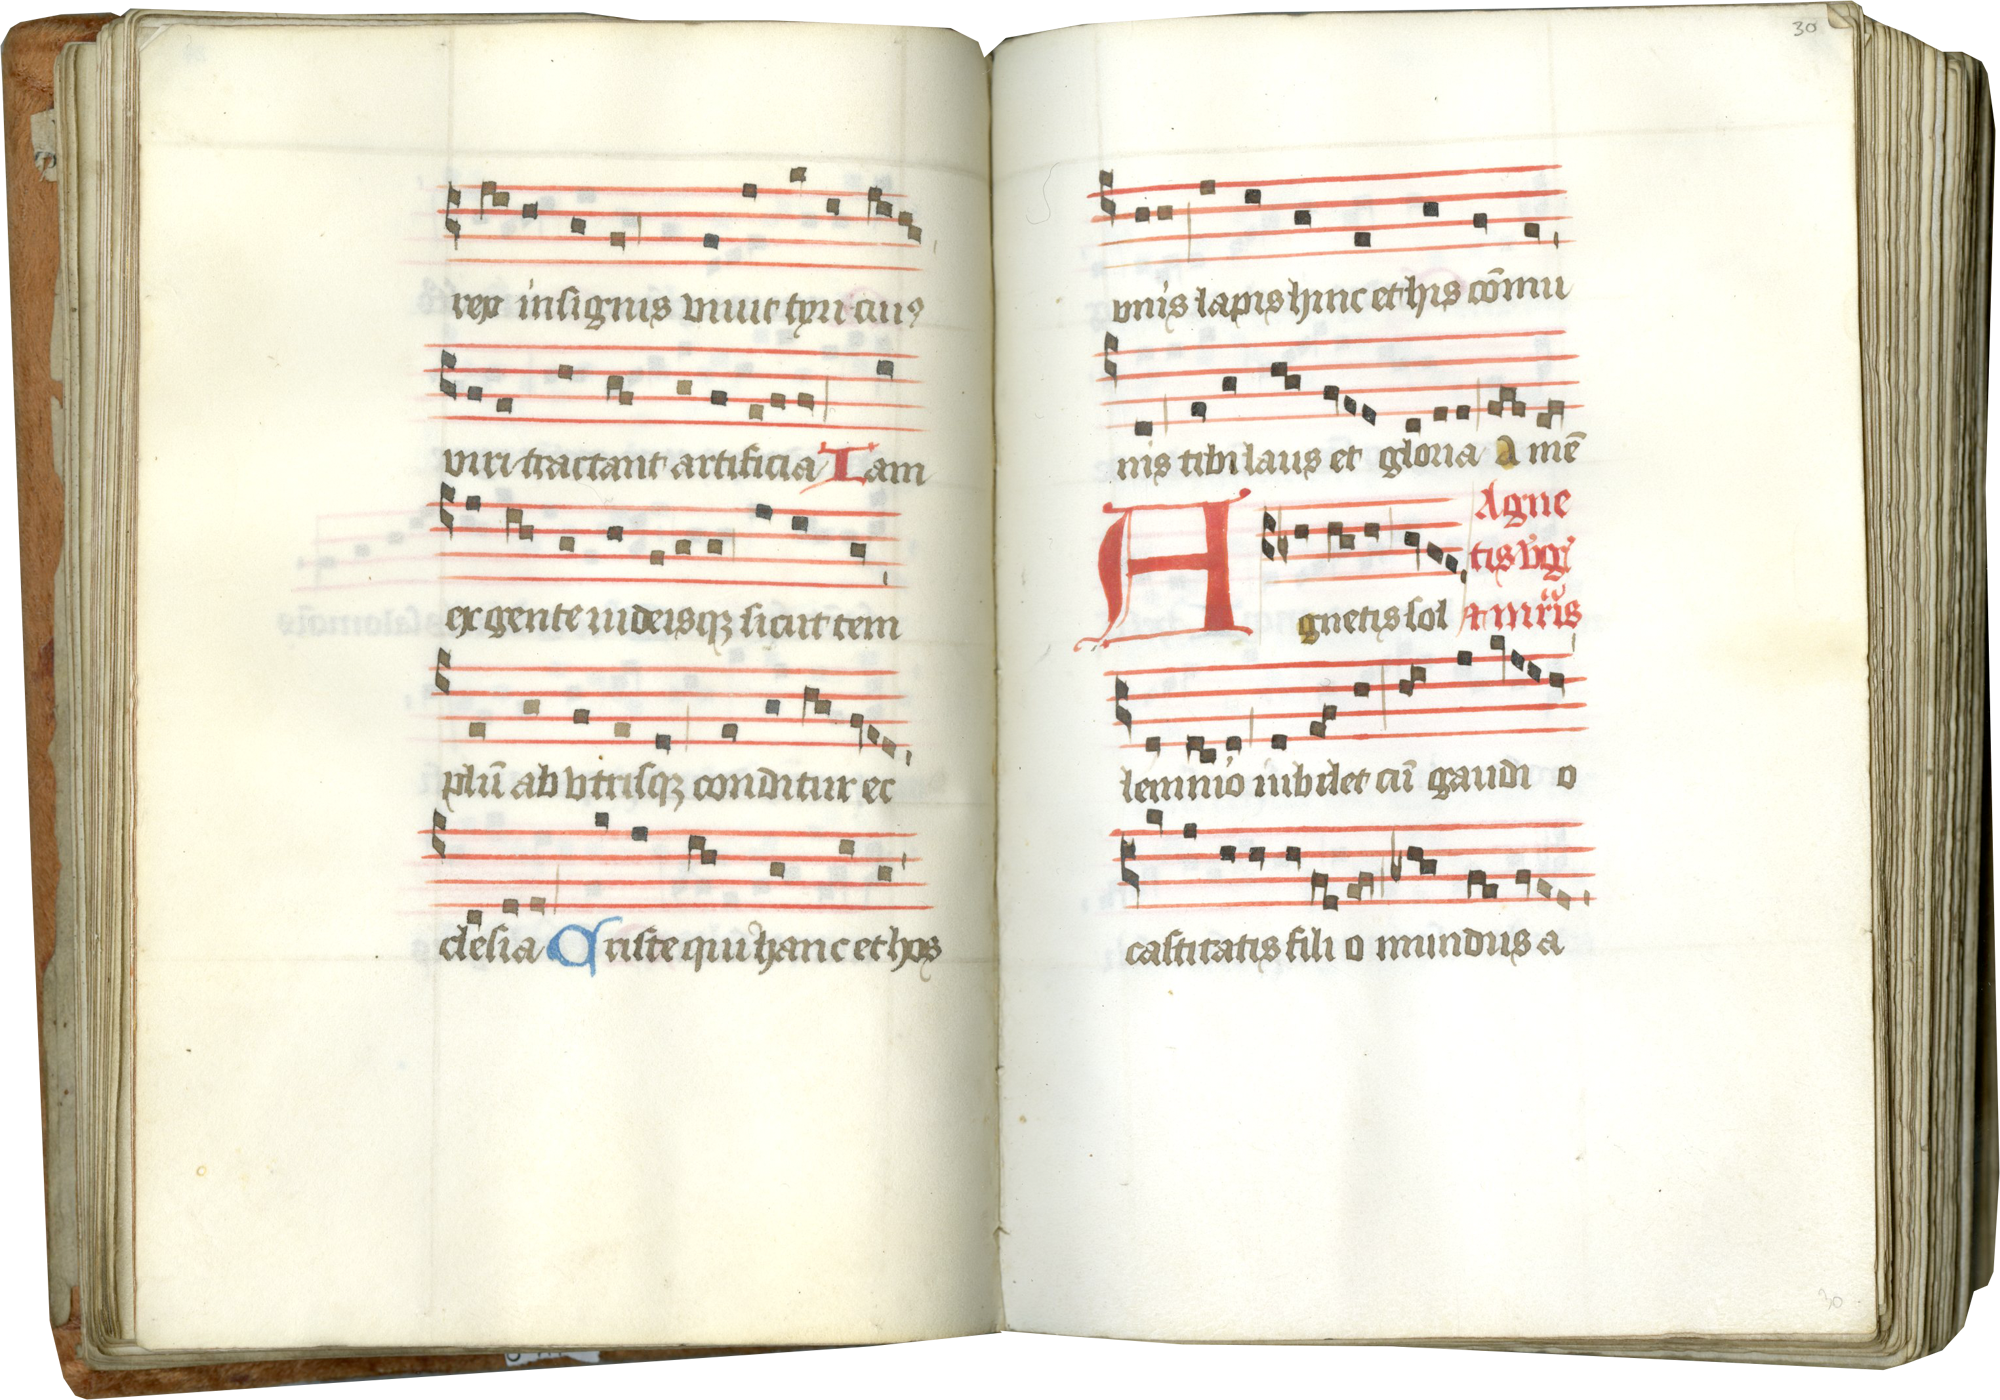 rex insignis viuit tyri cuiꝰ
viri tractant artificia Tam
ex gente iudeisqꝫ sicut tem
plū ab vtrisqꝫ conditur ec
clesia Criste qui hanc et hos
30
vnis lapis hinc et his cōmu
nis tibi laus et gloria Amē
Agne
tis
Agnetis sol
lemnio iubilet cū gaudio
castitatis filio mundus a
30